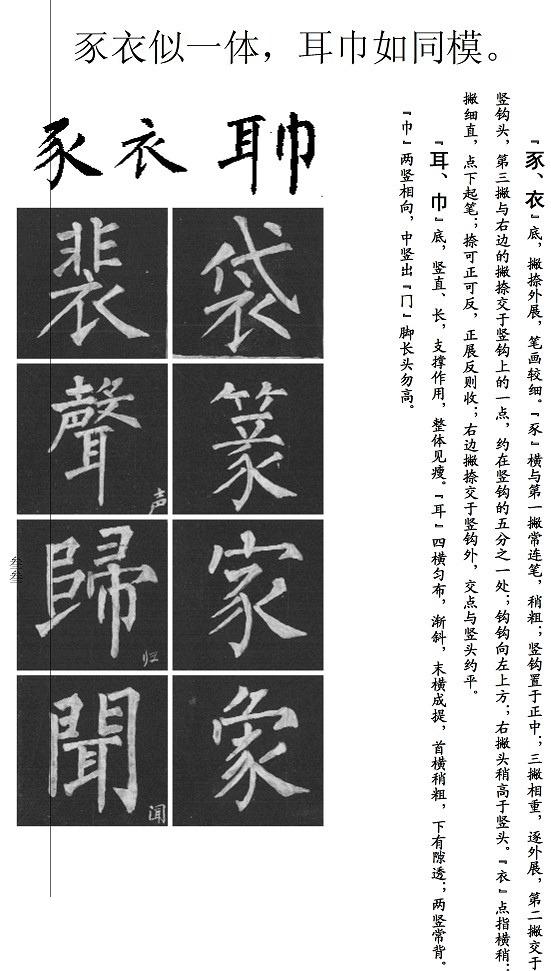 豕衣似一体，耳巾如同模。
『豕、衣』底，撇捺外展，笔画较细。『豕』横与第一撇常连笔，稍粗；竖钩置于正中；三撇相重，逐外展，第二撇交于
竖钩头，第三撇与右边的撇捺交于竖钩上的一点，约在竖钩的五分之一处；钩钩向左上方；右撇头稍高于竖头。『衣』点指横稍；
撇细直，点下起笔；捺可正可反，正展反则收；右边撇捺交于竖钩外，交点与竖头约平。
『耳、巾』底，竖直、长，支撑作用，整体见瘦。『耳』四横匀布，渐斜，末横成提，首横稍粗，下有隙透；两竖常背。
『巾』两竖相向，中竖出『冂』脚长头勿高。
豕 衣 耳 巾
袋
篆
家
象
裴
聲 声
歸 归
聞 闻
叁叁